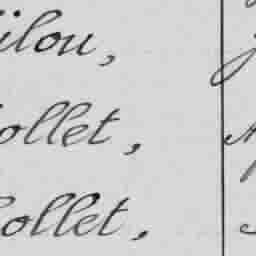 ilou,
ollet,
ollet,